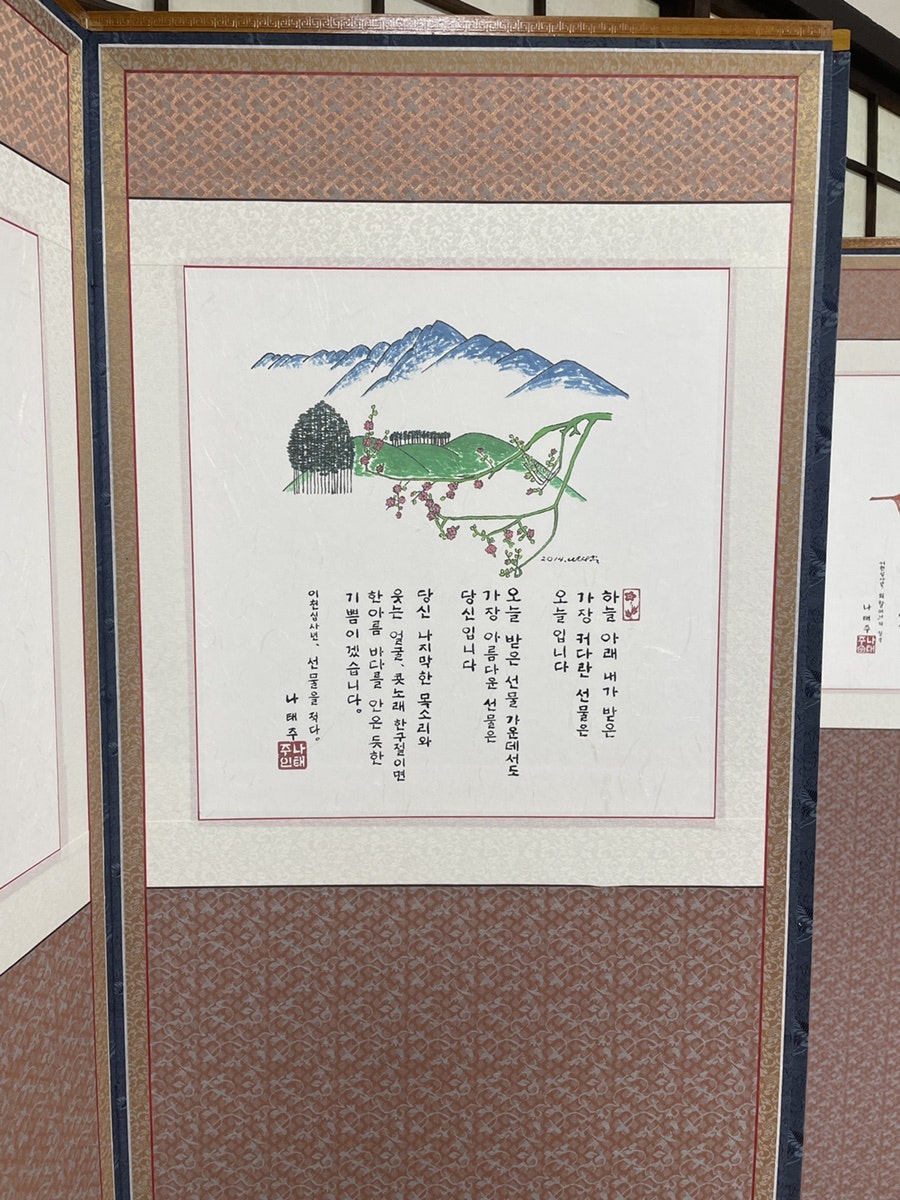 2014. 나태주
하늘 아래 내가 받은
가장 커다란 선물은
오늘입니다
오늘 받은 선물 가운데서도
가장 아름다운 선물은
당신입니다
당신 나지막한 목소리와
웃는 얼굴, 콧노래 한구절이면
한아름 바다를 안은 듯한
기쁨이겠습니다.
이천십사년, 선물을 적다.
나태주
나태주인
나태주